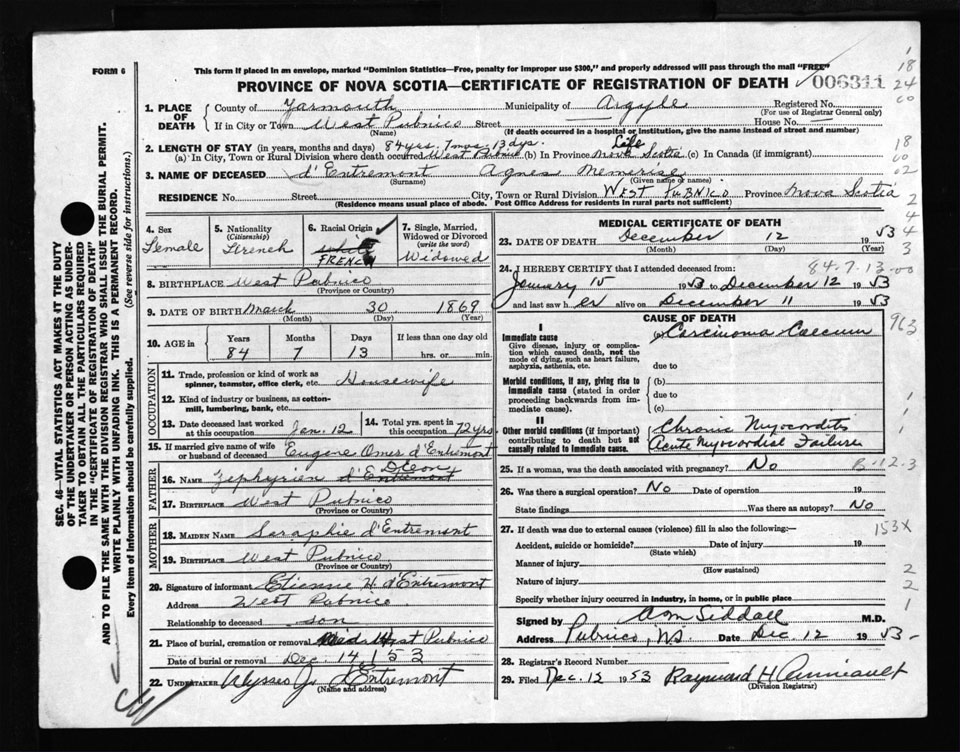 FORM 6
This form if placed in an envelope, marked "Dominion Statistics—Free, penalty for improper use $300," and properly addressed will pass through the mail "FREE"
PROVINCE OF NOVA SCOTIA—CERTIFICATE OF REGISTRATION OF DEATH
006311
1. PLACE OF DEATH
County of Yarmouth Municipality of Argyle Registered No.
(For use of Registrar General only)
If in City or Town West Pubnico Street House No.
(Name) (If death occurred in a hospital or institution, give the name instead of street and number)
2. LENGTH OF STAY (in years, months and days) 84 yrs. 7 mos. 13 dys. Life
(a) In City, Town or Rural Division where death occurred West Pubnico (b) In Province Nova Scotia (c) In Canada (if immigrant)
3. NAME OF DECEASED d'Entremont Agnes
(Surname) (Given name or names)
RESIDENCE No. Street City, Town or Rural Division WEST PUBNICO Province Nova Scotia
(Residence means usual place of abode. Post Office Address for residents in rural parts not sufficient)
4. Sex
Female
5. Nationality
(Citizenship)
French
6. Racial Origin
FRENCH
7. Single, Married, Widowed or Divorced
(write the word)
Widowed
8. BIRTHPLACE West Pubnico
(Province or Country)
9. DATE OF BIRTH March 30 1869
(Month) (Day) (Year)
10. AGE in
Years Months Days If less than one day old
84 7 13 hrs. or min.
OCCUPATION
11. Trade, profession or kind of work as spinner, teamster, office clerk, etc. Housewife
12. Kind of industry or business, as cotton-mill, lumbering, bank, etc.
13. Date deceased last worked at this occupation Jan. 12
14. Total yrs. spent in this occupation 72 yrs
15. If married give name of wife or husband of deceased Eugene Omer d'Entremont
FATHER
16. NAME Zephyrien d'Entremont
17. BIRTHPLACE West Pubnico
(Province or Country)
MOTHER
18. MAIDEN NAME Seraphie d'Entremont
19. BIRTHPLACE West Pubnico
(Province or Country)
20. Signature of informant Etienne H. d'Entremont
Address West Pubnico
Relationship to deceased son
21. Place of burial, cremation or removal West Pubnico
Date of burial or removal Dec. 14 / 53
22. UNDERTAKER Ulysses J. d'Entremont
(Name and address)
MEDICAL CERTIFICATE OF DEATH
23. DATE OF DEATH December 12 1953
(Month) (Day) (Year)
84-7-13-00
24. I HEREBY CERTIFY that I attended deceased from:
January 15 1953 to December 12 1953
and last saw her alive on December 11 1953
CAUSE OF DEATH
I
Immediate cause
Give disease, injury or complication which caused death, not the mode of dying, such as heart failure, asphyxia, asthenia, etc.
(a) Carcinoma Caecum
due to
Morbid conditions, if any, giving rise to immediate cause (stated in order proceeding backwards from immediate cause).
(b)
due to
(c)
II
Other morbid conditions (if important) contributing to death but not causally related to immediate cause.
Chronic Myocarditis
Acute Myocardial Failure
25. If a woman, was the death associated with pregnancy? No
B-12-3
26. Was there a surgical operation? No Date of operation 19
State findings Was there an autopsy? No
27. If death was due to external causes (violence) fill in also the following:—
153X
Accident, suicide or homicide? Date of injury 19
(State which)
Manner of injury
(How sustained)
Nature of injury
Specify whether injury occurred in industry, in home, or in public place
Signed by Siddall M.D.
Address Pubnico, NS Date Dec 12 1953
28. Registrar's Record Number
29. Filed Dec. 15 1953 Raymond H
(Division Registrar)
SEC. 46—VITAL STATISTICS ACT MAKES IT THE DUTY
OF THE UNDERTAKER OR PERSON ACTING AS UNDER-
TAKER TO OBTAIN ALL THE PARTICULARS REQUIRED
IN THE "CERTIFICATE OF REGISTRATION OF DEATH"
AND TO FILE THE SAME WITH THE DIVISION REGISTRAR WHO SHALL ISSUE THE BURIAL PERMIT.
WRITE PLAINLY WITH UNFADING INK. THIS IS A PERMANENT RECORD.
Every item of information should be carefully supplied. (See reverse side for instructions.)
18
24
60
18
60
02
2
4
4
3
963
1
1
1
2
2
1